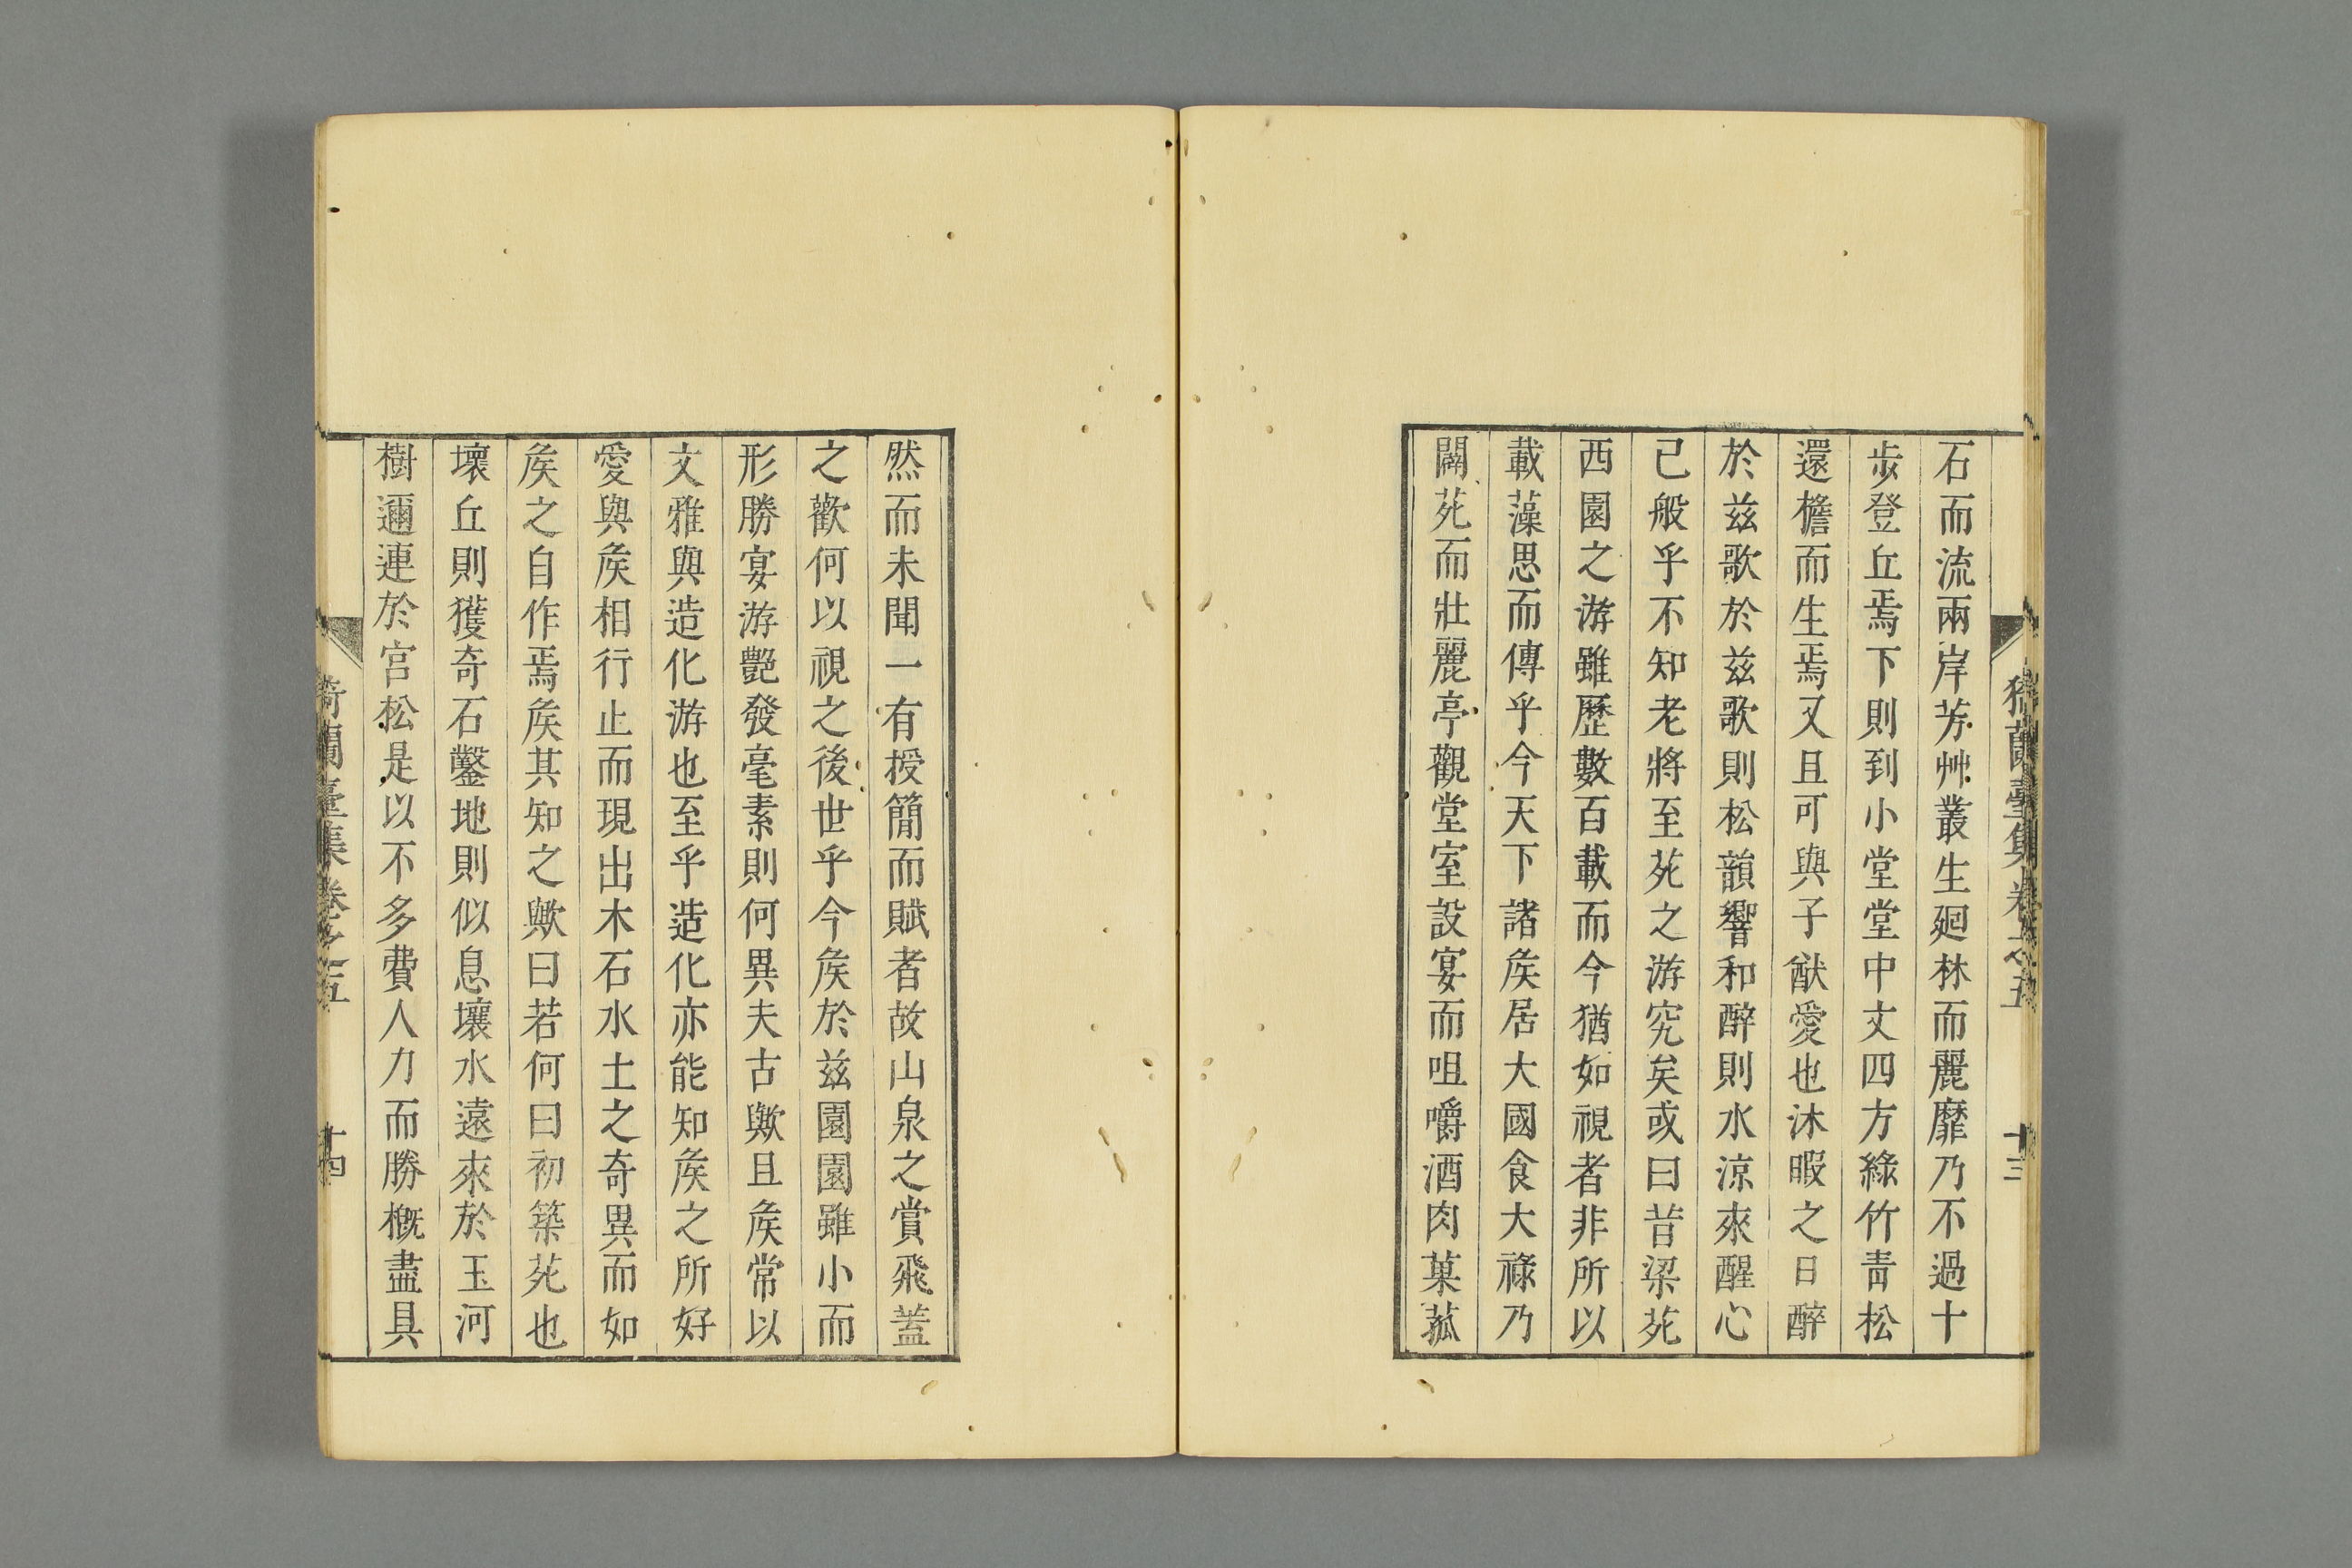 猗蘭臺集卷之五 十三
石而流兩岸芳艸叢生廻林而麗靡乃不過十
步登丘焉下則到小堂堂中丈四方綠竹青松
還檐而生焉又且可與子猷愛也沐暇之日醉
於兹歌於兹歌則松韻響和醉則水涼來醒心
已般乎不知老將至苑之游究矣或曰昔梁苑
西園之游雖歷數百載而今猶如視者非所以
載藻思而傳乎今天下諸矦居大國食大祿乃
闢苑而壯麗亭觀堂室設宴而咀嚼酒肉菓蓏
然而未聞一有授簡而賦者故山泉之賞飛蓋
之歡何以視之後世乎今矦於兹園園雖小而
形勝宴游艷發毫素則何異夫古歟且矦常以
文雅與造化游也至乎造化亦能知矦之所好
愛與矦相行止而現出木石水土之奇異而如
矦之自作焉矦其知之歟曰若何曰初築苑也
壞丘則獲奇石鑿地則似息壤水遠來於玉河
樹邇連於宮松是以不多費人力而勝槪盡具
猗蘭臺集卷之五 十四